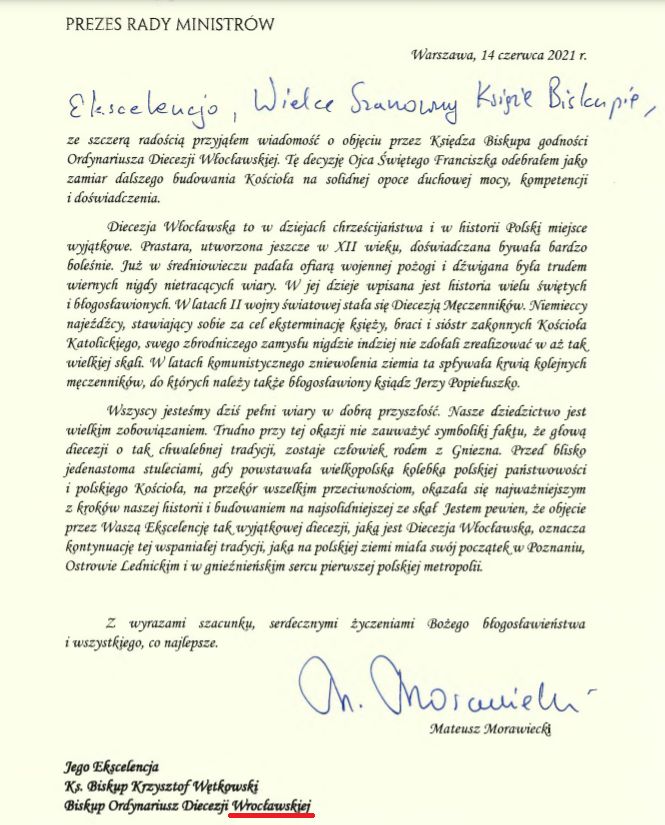 PREZES RADY MINISTRÓW
Warszawa, 14 czerwca 2021 r.
Ekscelencjo, Wielce Szanowny Księże Biskupie,
ze szczerą radością przyjąłem wiadomość o objęciu przez Księdza Biskupa godności
Ordynariusza Diecezji Włocławskiej. Tę decyzję Ojca Świętego Franciszka odebrałem jako
zamiar dalszego budowania Kościoła na solidnej opoce duchowej mocy, kompetencji
i doświadczenia.
Diecezja Włocławska to w dziejach chrześcijaństwa i w historii Polski miejsce
wyjątkowe. Prastara, utworzona jeszcze w XII wieku, doświadczana bywała bardzo
boleśnie. Już w średniowieczu padała ofiarą wojennej pożogi i dźwigana była trudem
wiernych nigdy nietracących wiary. W jej dzieje wpisana jest historia wielu świętych
i błogosławionych. W latach II wojny światowej stała się Diecezją Męczenników. Niemieccy
najeźdźcy, stawiający sobie za cel eksterminację księży, braci i sióstr zakonnych Kościoła
Katolickiego, swego zbrodniczego zamysłu nigdzie indziej nie zdołali zrealizować w aż tak
wielkiej skali. W latach komunistycznego zniewolenia ziemia ta spływała krwią kolejnych
męczenników, do których należy także błogosławiony ksiądz Jerzy Popiełuszko.
Wszyscy jesteśmy dziś pełni wiary w dobrą przyszłość. Nasze dziedzictwo jest
wielkim zobowiązaniem. Trudno przy tej okazji nie zauważyć symboliki faktu, że głową
diecezji o tak chwalebnej tradycji, zostaje człowiek rodem z Gniezna. Przed blisko
jedenastoma stuleciami, gdy powstawała wielkopolska kolebka polskiej państwowości
i polskiego Kościoła, na przekór wszelkim przeciwnościom, okazała się najważniejszym
z kroków naszej historii i budowaniem na najsolidniejszej ze skał Jestem pewien, że objęcie
przez Waszą Ekscelencję tak wyjątkowej diecezji, jaką jest Diecezja Włocławska, oznacza
kontynuację tej wspaniałej tradycji, jaka na polskiej ziemi miała swój początek w Poznaniu,
Ostrowie Lednickim i w gnieźnieńskim sercu pierwszej polskiej metropolii.
Z wyrazami szacunku, serdecznymi życzeniami Bożego błogosławieństwa
i wszystkiego, co najlepsze.
M. Morawiecki
Mateusz Morawiecki
Jego Ekscelencja
Ks. Biskup Krzysztof Wętkowski
Biskup Ordynariusz Diecezji Wrocławskiej